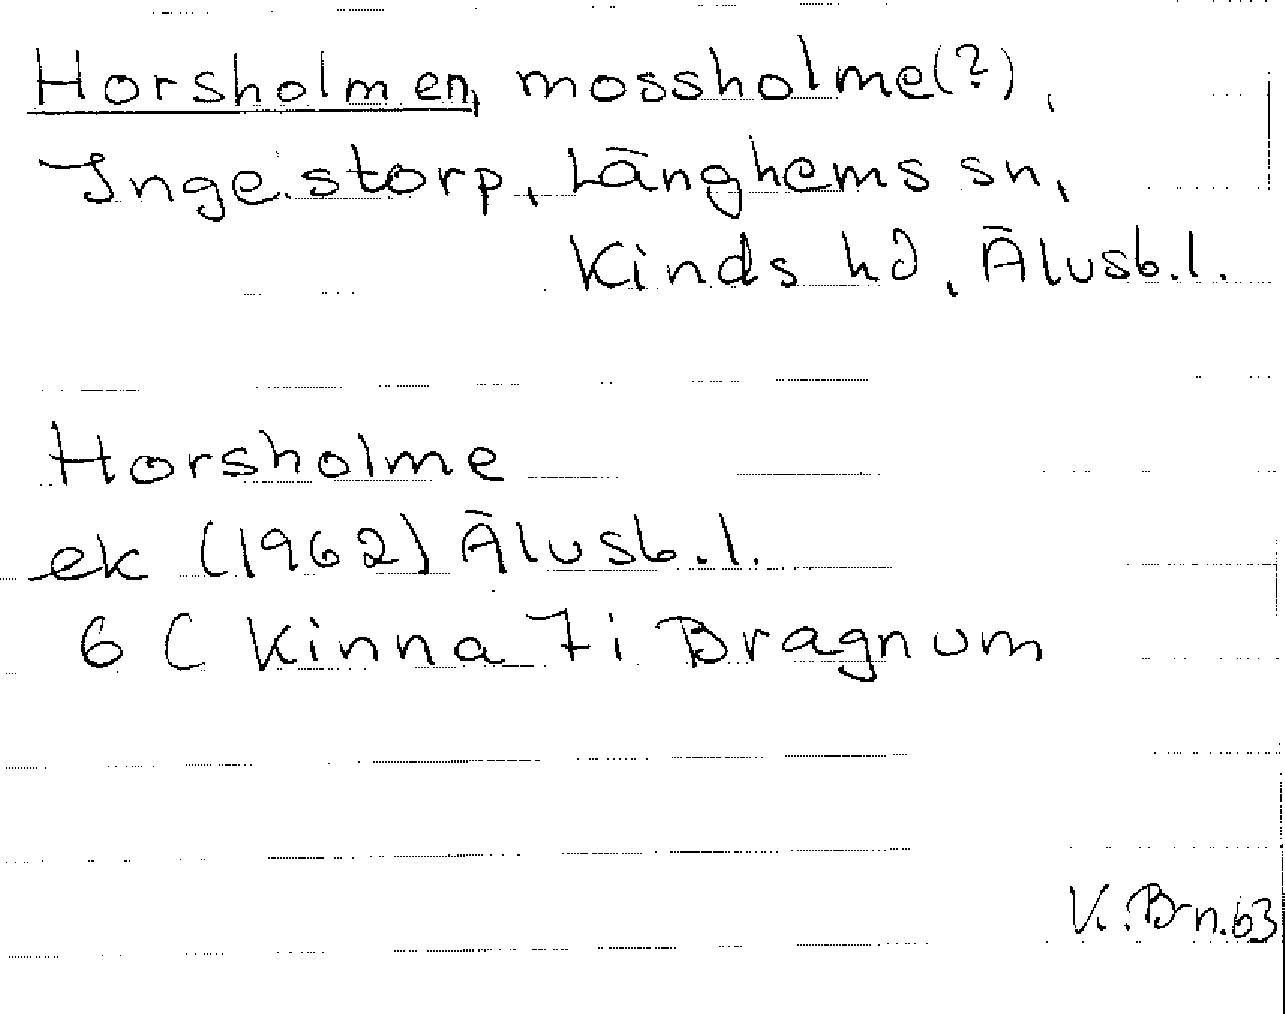 Horsholmen, mossholme(?),
Ingestorp, Länghems sn,
Kinds hd, Älvsb.l.
Horsholme
ek (1962) Älvsb.l.
6 C Kinna 7i Bragnum
V. Brn. 63